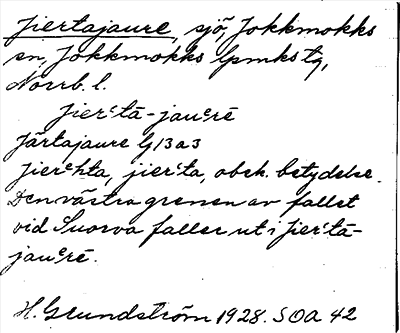 Jiertajaure, sjö, Jokkmokks
sn, Jokkmokks lpmkstg,
Norrb. l.
jierᶜtā-jauᵉrē
Järtajaure G 13 a 3
jierᵉhta, jierᶜta, obek. betydelse.
Den västra grenen av fallet
vid Suorva faller ut i jierᶜtā-
jauᵉrē.
H. Grundström 1928. SOA 42